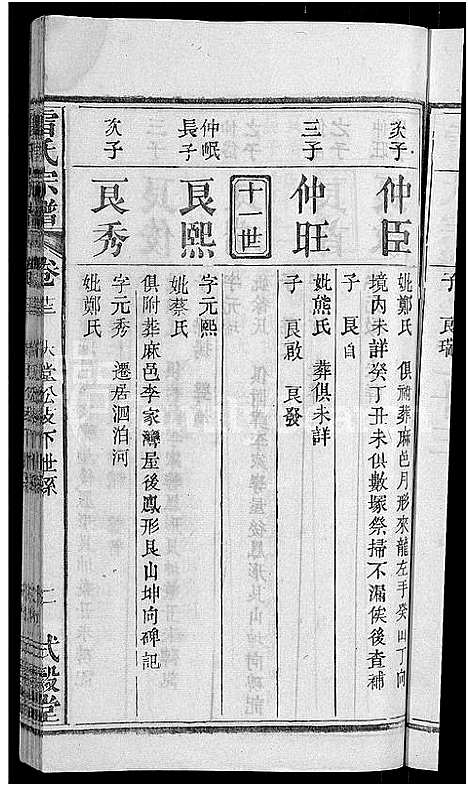 子 良瑞
次子
仲臣
妣鄭氏 俱祔葬麻邑月形來龍左手癸山丁向
境內未詳癸丁丑未俱數塚祭掃不漏俟後查補
子 良自
三子
仲旺
妣熊氏 葬俱未詳
子 良啟 良發
十一世
仲岷
長子
良熙
字元熙
妣蔡氏
俱附葬麻邑李家灣屋後鳳形艮山坤向碑記
次子
良秀
字元秀 遷居泗泊河
妣鄭氏
雷氏宗譜
卷廿三 大堂公支下世系
二
式穀堂